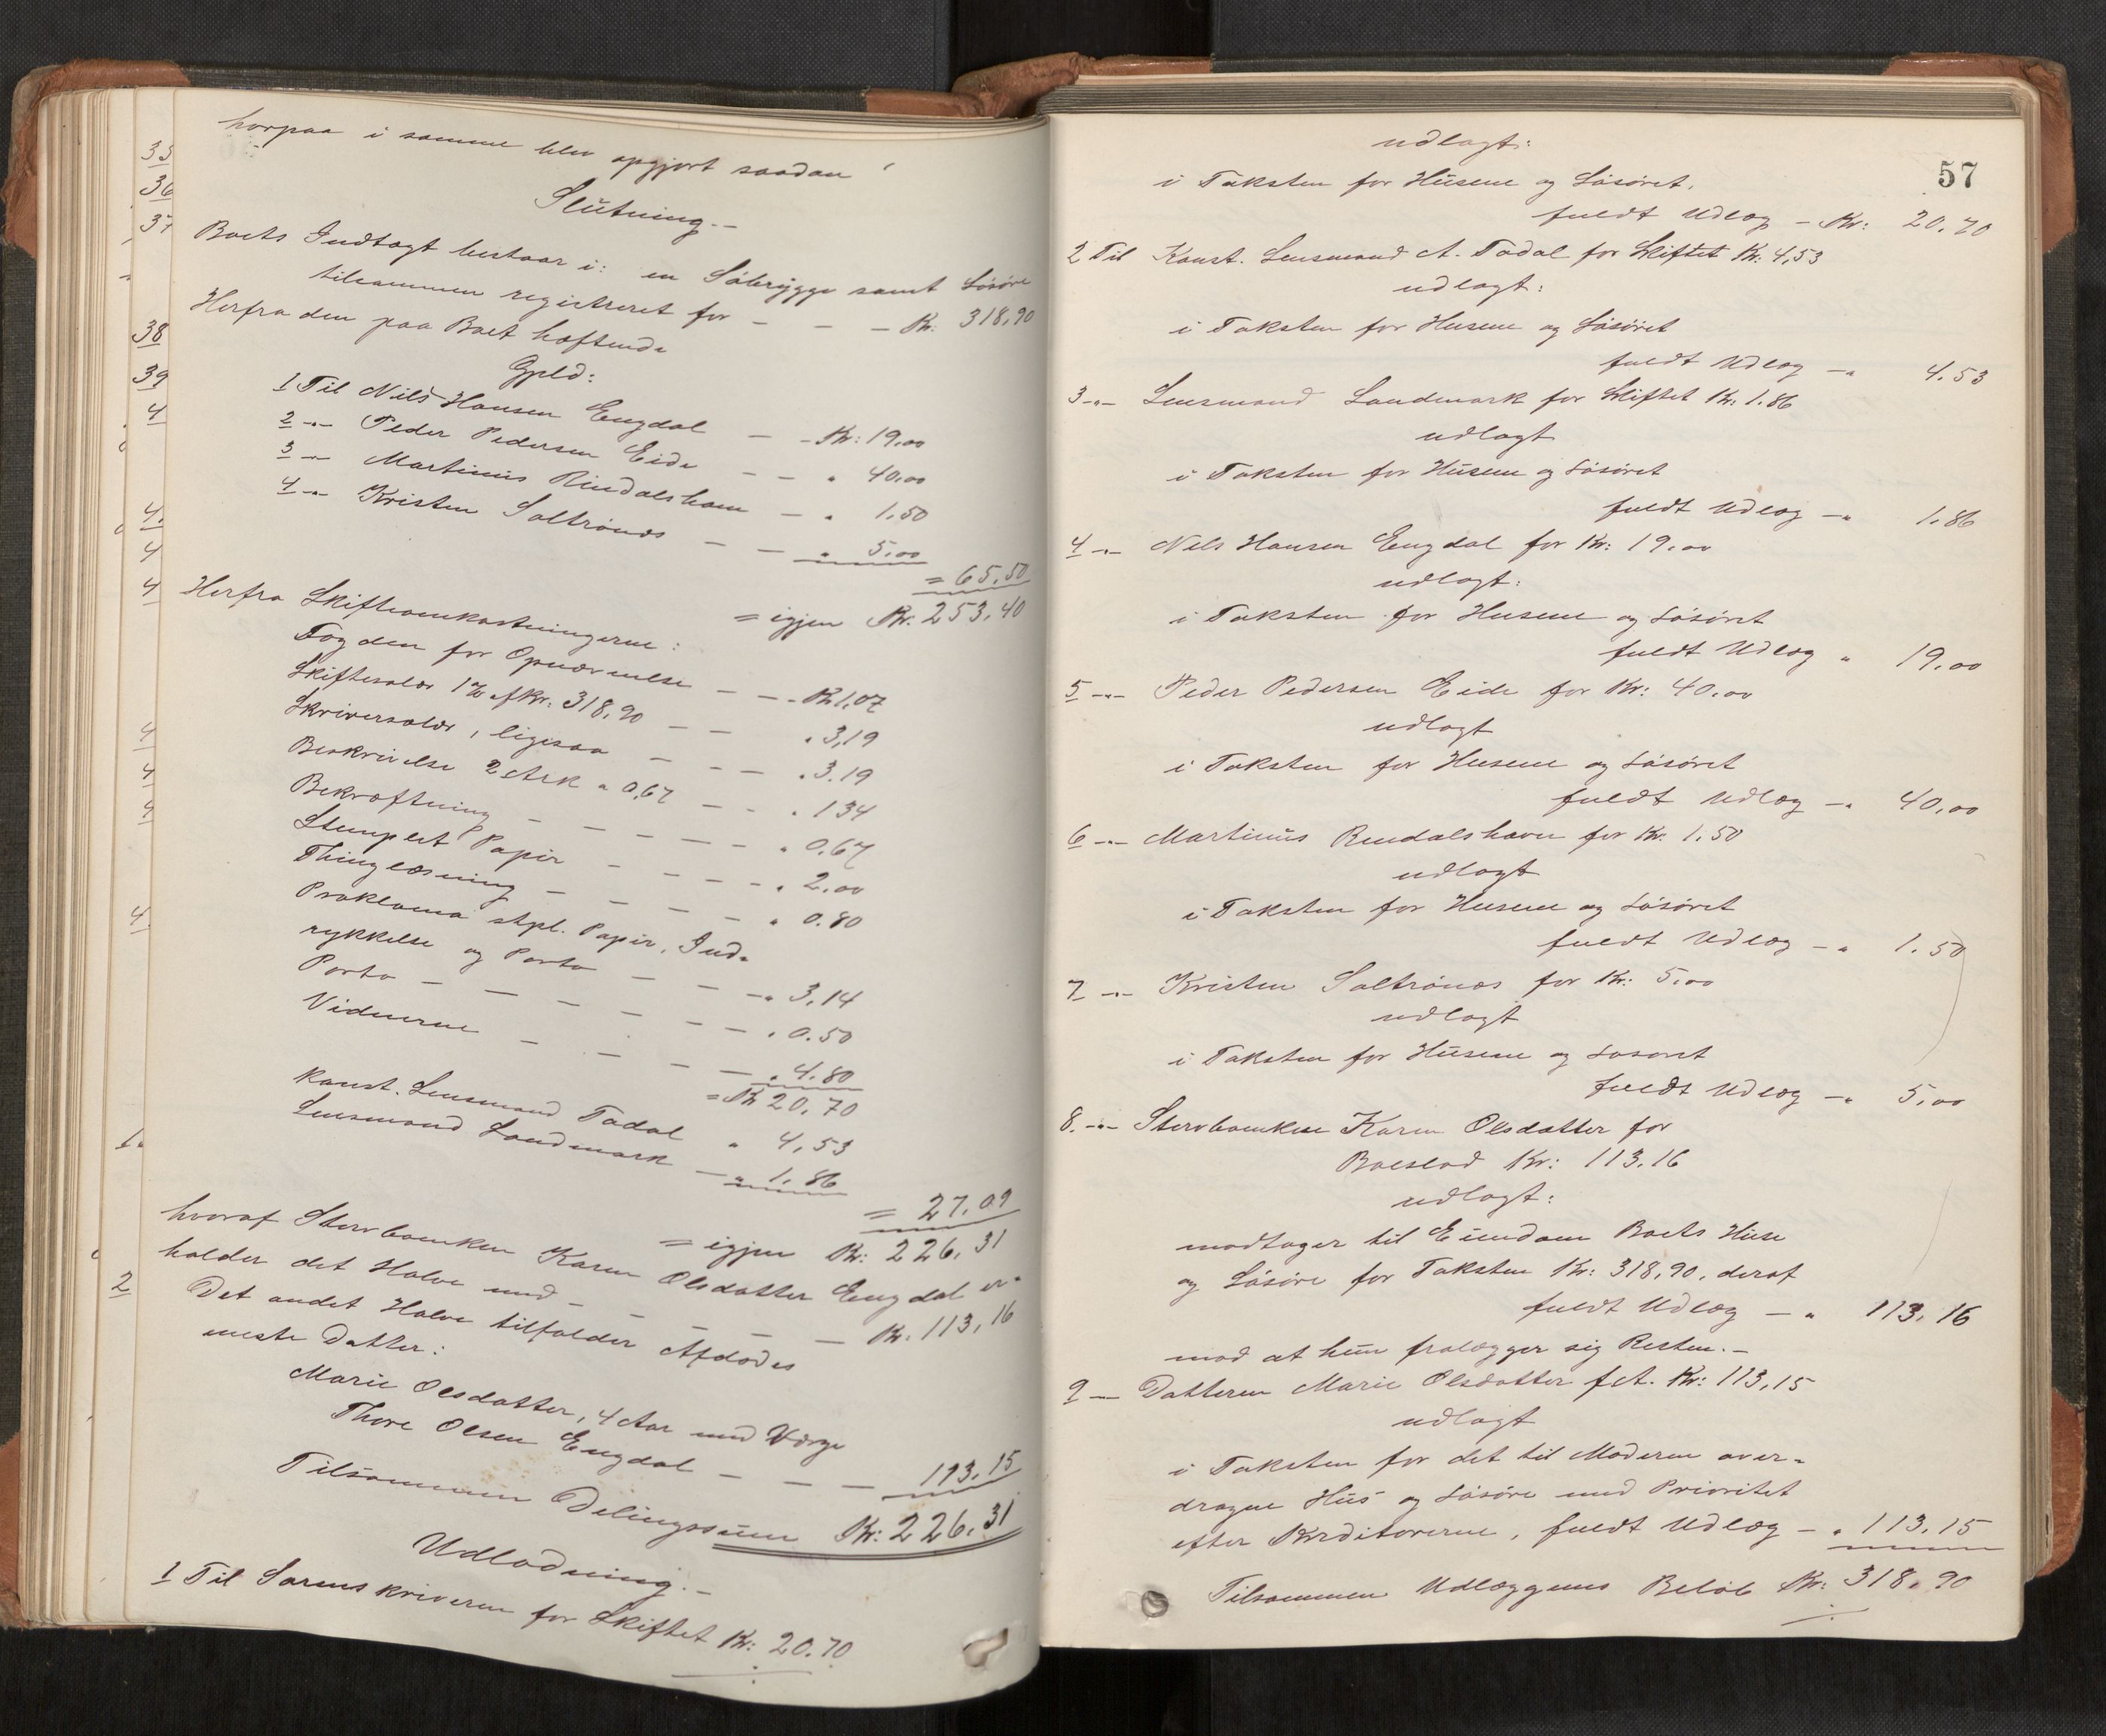 horpaa i samme blev opgjort saadan
Slutning.-
Boets Indtægt bestaar i: en Söbrygge samt Lösöre
tilsammen registreret for - - - Kr: 318,90
Herfra den paa Boet hæftende
Gjæld:
1 Til Nils Hansen Engdal - - Kr: 19.00
2 -"- Peder Pedersen Eide - - " 40.00
3 -"- Martinus Rindalshavn - " 1.50
4 -"- Kristen Saltrönæs - - " 5.00
= 65.50
= igjen Kr. 253,40
Herfra Skifteomkostningerne:
Fogden for Opnævnelse - - - Kr 1,07
Skiftesalær 1% af Kr. 318,90 - - " 3,19
Skriversalær, ligesaa - - - " 3.19
Beskrivelse 2 Ark a 0,67 - - " 1 34
Bekræftning - - - - - " 0.67
Stemplet Papir - - - - " 2.00
Thinglæsning - - - - - " 0.80
Proklama stpl. Papir, Ind-
rykkelse og Porto - - - " 3,14
Porto - - - - - - " 0.50
Vidnerne - - - - " 4.80
= Kr 20,70
Konst. Lensmand Tadal " 4,53
Lensmand Landmark - " 1.86
= 27,09
= igjen Kr: 226,31
hvoraf Stervboenken Karen Olsdatter Engdal er-
holder det Halve med - - - - - Kr: 113,16
Det andet Halve tilfalder Afdødes
eneste Datter:
Marie Olsdatter, 4 Aar med Værge
Thore Olsen Engdal - - - 113.15
Tilsammen Delingssum Kr: 226,31
Udlodning.-
1 Til Sorenskriveren for Skiftet Kr: 20.70
57
udlagt:
i Taksten for Husene og Lösöret.
fuldt Udlæg - Kr: 20.70
2 Til Konst. Lensmand A. Tadal for Skiftet Kr: 4,53
udlagt:
i Taksten for Husene og Lösöret
fuldt Udlæg -" 4.53
3 -"- Lensmand Landmark for Skiftet Kr: 1.86
udlagt
i Taksten for Husene og Lösöret
fuldt Udlæg -" 1.86
4 -"- Nils Hansen Engdal for Kr: 19.00
udlagt:
i Taksten for Husene og Lösöret
fuldt Udlæg " 19.00
5 -"- Peder Pedersen Eide for Kr: 40.00
udlagt
i Taksten for Husene og Lösöret
fuldt Udlæg -" 40,00
6 -"- Martinus Rindalshavn for Kr. 1.50
udlagt
i Taksten for Husene og Lösöret
fuldt Udlæg -" 1.50
7 -"- Kristen Saltrönæs for Kr: 5.00
udlagt
i Taksten for Husene og Losoret
fuldt Udlæg -" 5,00
8. -"- Stervboenken Karen Olsdatter for
Boeslod Kr: 113.16
udlagt:
modtager til Eiendom Boets Huse
og Lösöre for Taksten Kr: 318,90, deraf
fuldt Udlæg - " 113.16
mod at hun fralægger sig Resten.-
9 -"- Datteren Marie Olsdatter f. A. Kr: 113,15
udlagt
i Taksten for det til Moderen over-
dragne Hus og Lösöre med Prioritet
efter Kreditorerne, fuldt Udlæg - " 113.15
Tilsammen Udlæggenes Belöb Kr: 318.90
35
36
37
38
39
4
4.
4
4
4
4
4
4
1.
2